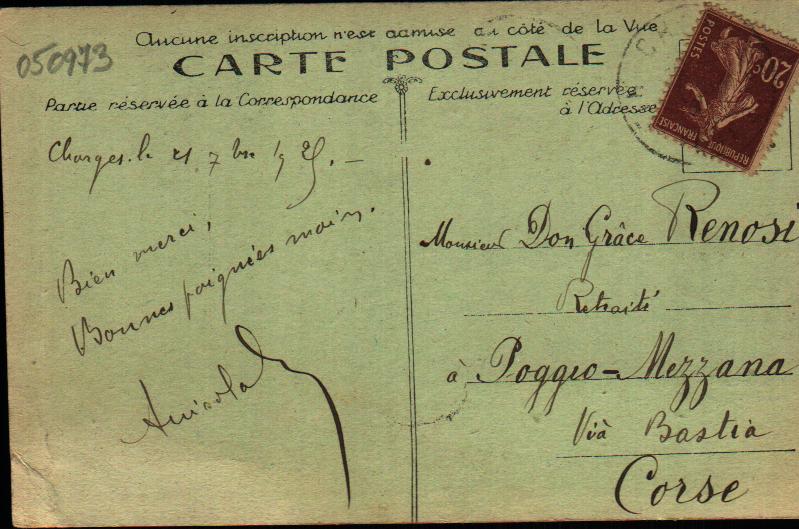 Aucune inscription n'est admise au côté de la Vue
CARTE POSTALE
050973
Partie réservée à la Correspondance
Exclusivement réservée
à l'Adresse
POSTES
20c
REPUBLIQUE FRANÇAISE
Chorges. le 21 7bre 1925. —
Bien merci,
Bonnes poignées mains.
Monsieur Don Grâce Renosi
Retraité
à Poggio-Mezzana
Vià Bastia
Corse